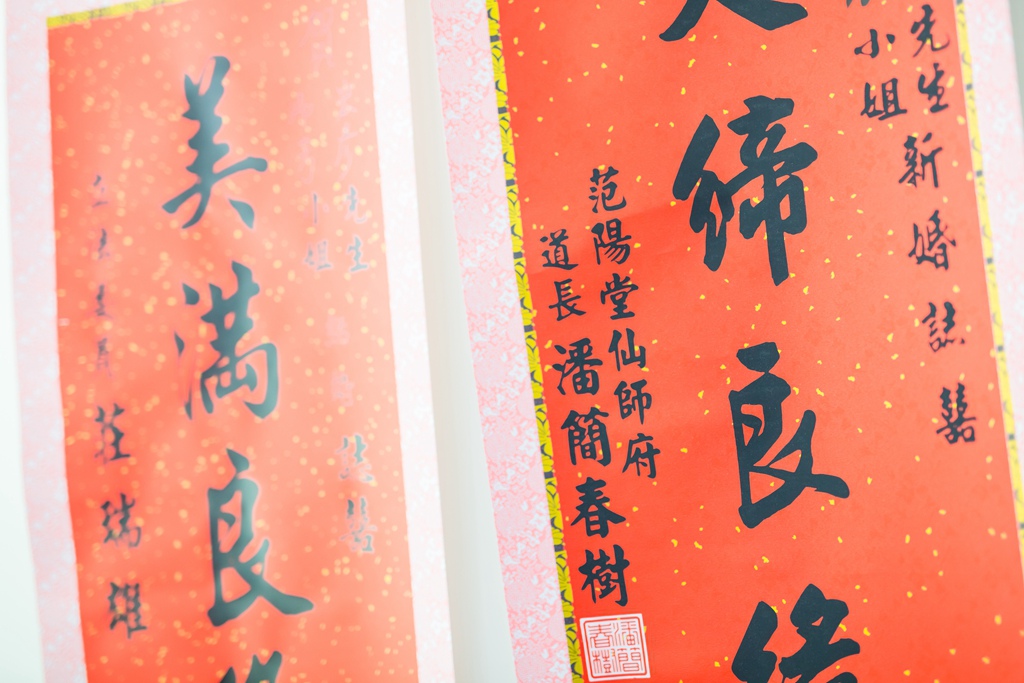 先生新婚誌囍
小姐
締良緣
范陽堂仙師府
道長潘簡春樹
潘簡春樹
先生 誌囍
姐
美滿良
莊瑞雄